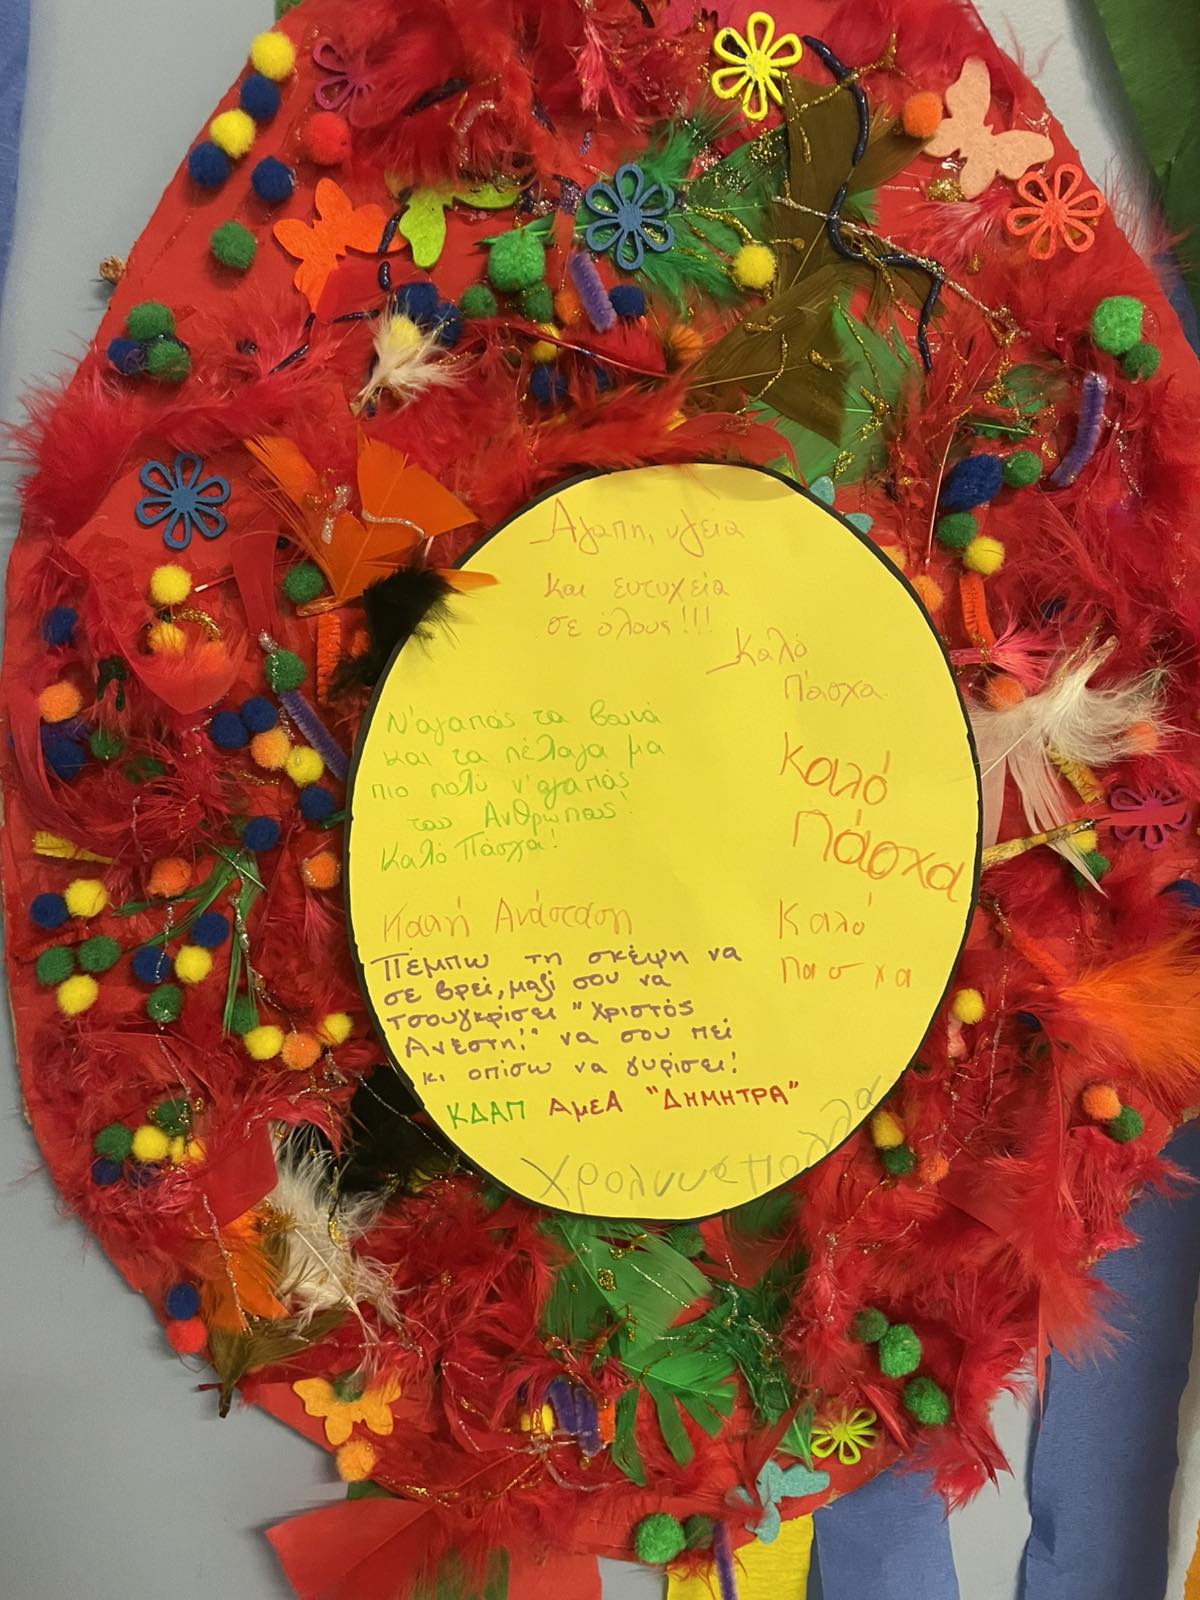 Αγαπη, υγεία
και ευτυχεία
σε όλους!!!
Καλό
Πάσχα
Ν'αγαπάς τα βουνά
και τα πέλαγα μα
πιο πολύ ν'αγαπάς
τους Ανθρώπους!
Καλό Πάσχα!
Καλό
Πάσχα
Καλή Ανάσταση
Καλό
πασχα
Πέμπω τη σκέψη να
σε βρει, μαζί σου να
τσουγκρίσει "Χριστός
Ανέστη!" να σου πει
κι οπίσω να γυρίσει!
ΚΔΑΠ ΑμεΑ "ΔΗΜΗΤΡΑ"